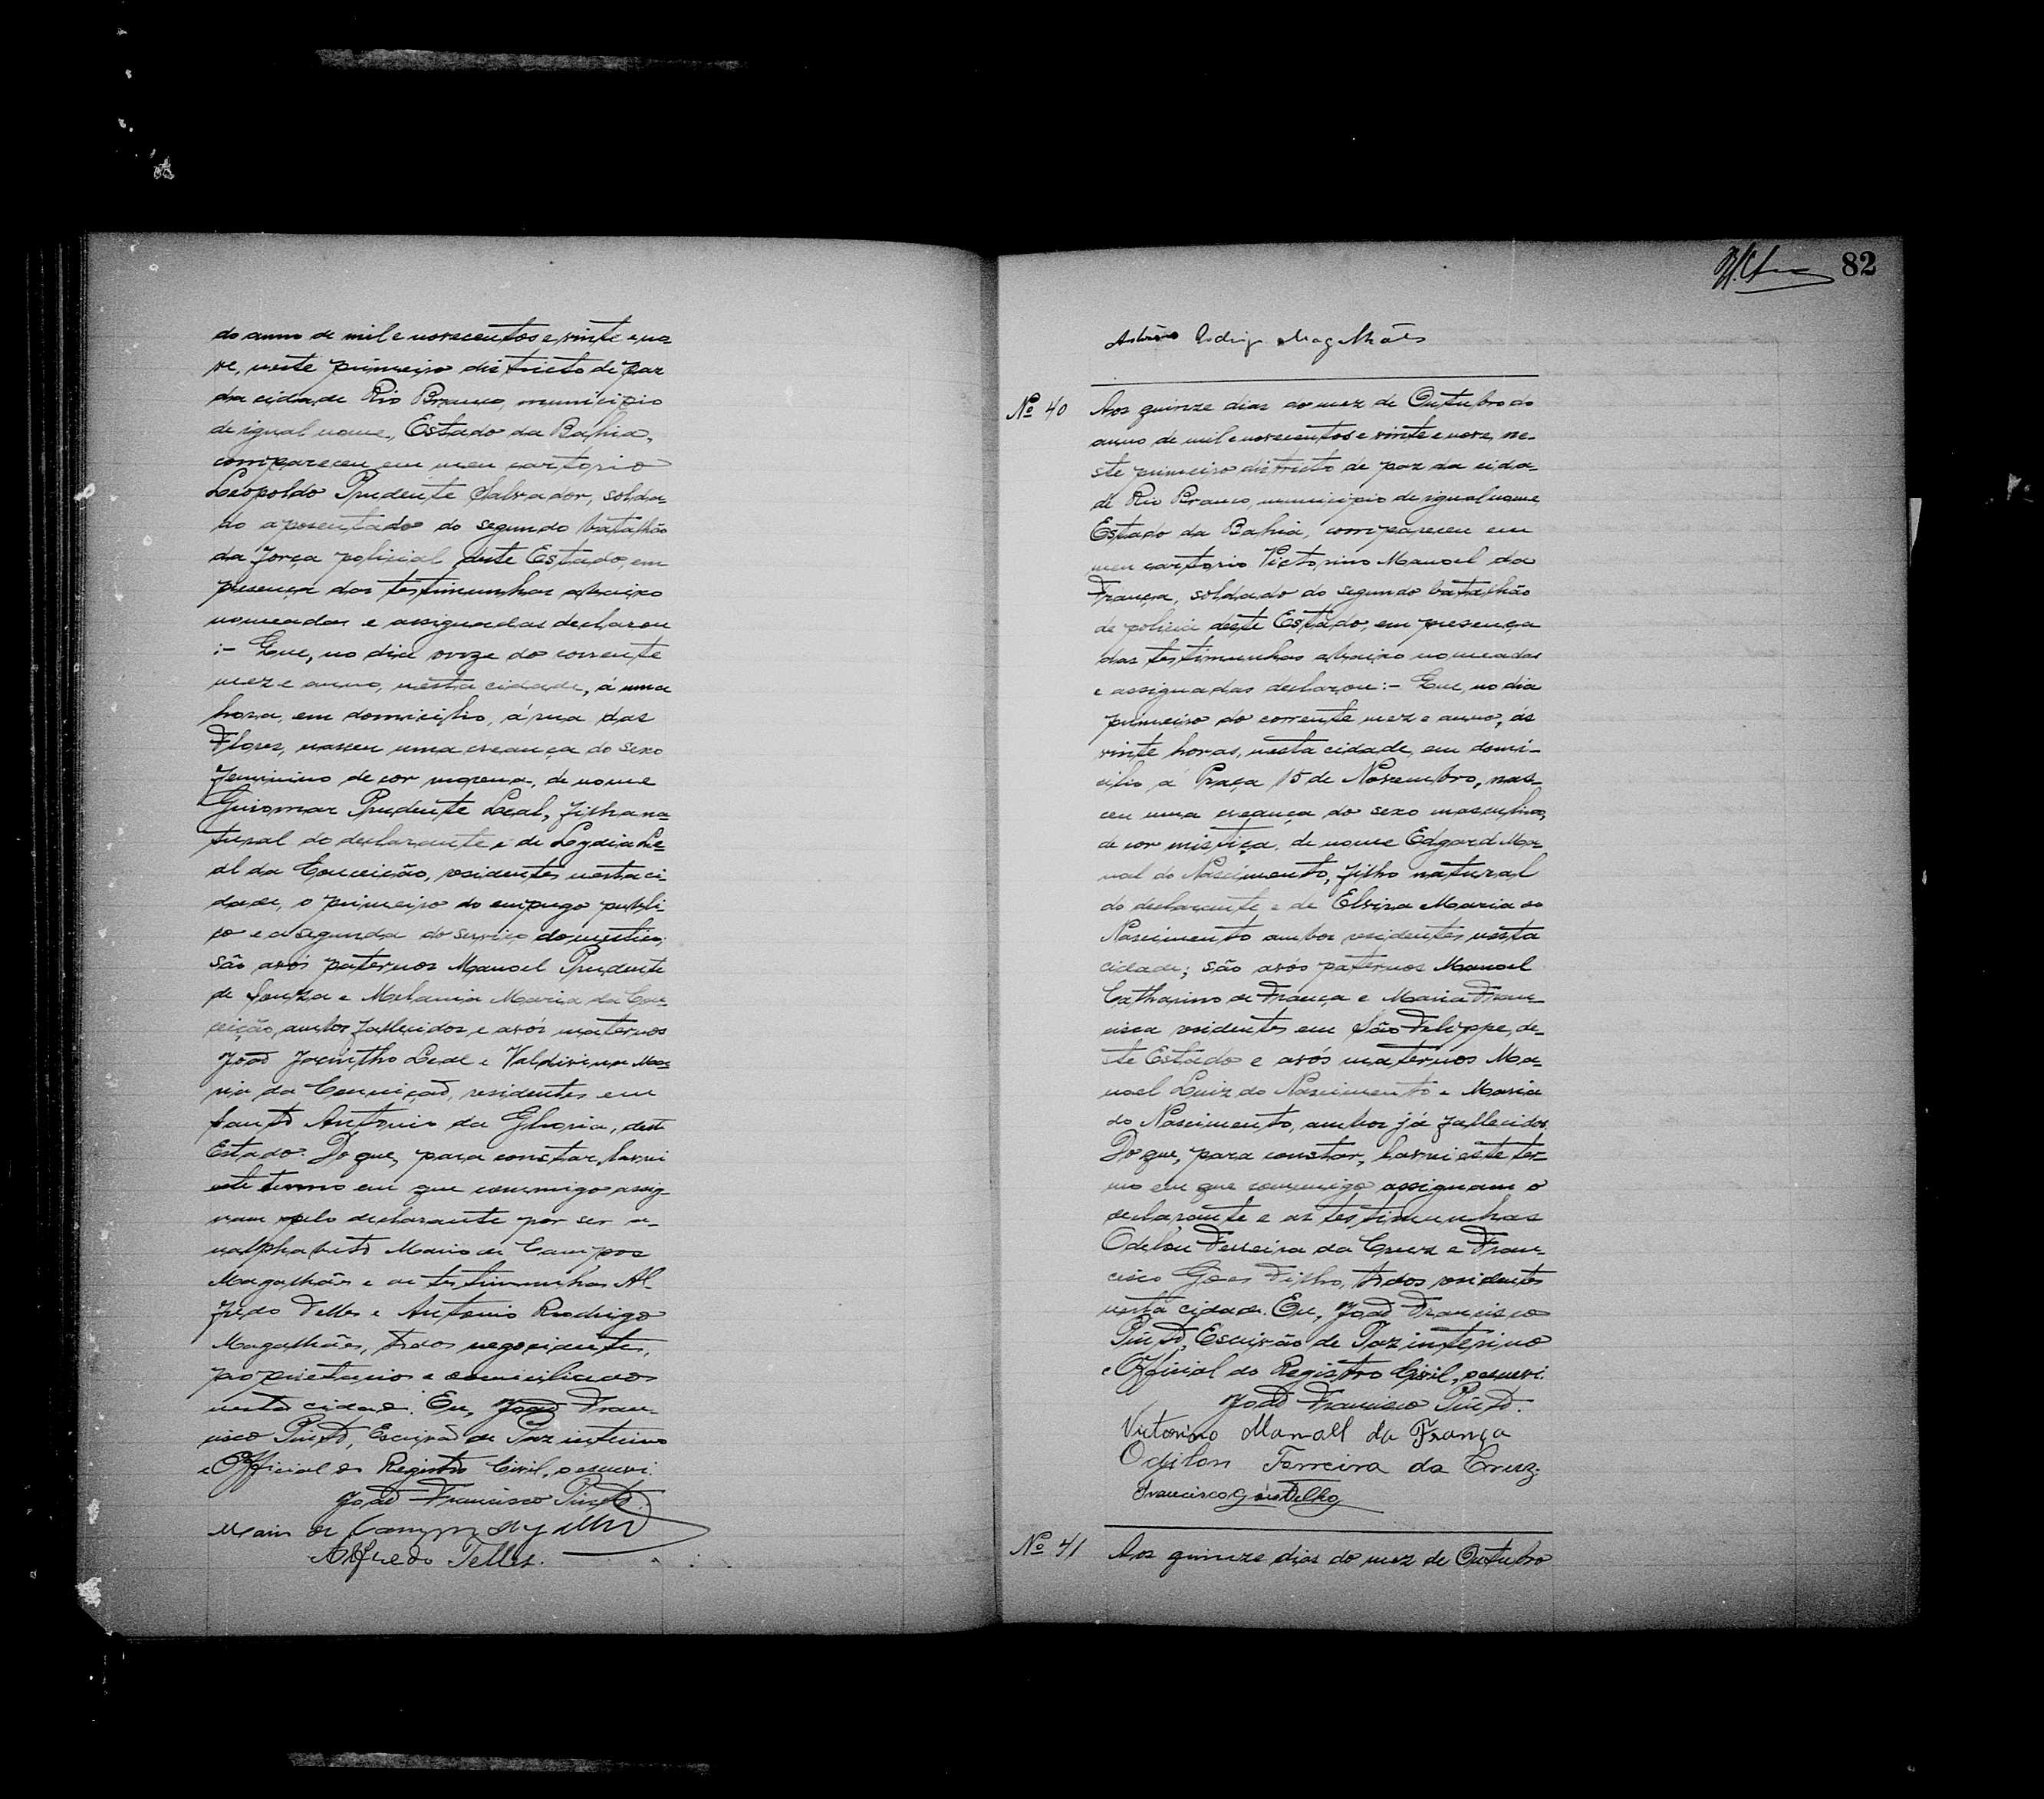 do anno de mil e novecentos e vinte e no-
ve, neste primeiro districto de paz
da cidade Rio Branco, municipio
de igual nome, Estado da Bahia,
compareceu em meu cartorio
Leopoldo Prudente Salvador, solda-
do aposentado do segundo batalhão
da força policial deste Estado, em
presença das testimunhas abaixo
nomeadas e assignadas declarou
:- Que, no dia onze do corrente
mez e anno, nesta cidade, á uma
hora, em domicilio, á rua das
Flores, nasceu uma creança do sexo
feminino de cor morena, de nome
Guiomar Prudente Leal, filha na-
tural do declarante e de Lydia Le-
al da Conceição, residentes nesta ci-
dade, o primeiro do emprego publi-
co e a segunda do serviço domestico;
são avós paternos Manoel Prudente
de Souza e Melania Maria da Con-
ceição, ambos fallecidos e avós maternos
João Jacintho Leal e Valdivina Ma-
ria da Conceição, residentes em
Santo Antonio da Gloria, deste
Estado. Do que, para constar, lavrei
este termo em que commigo assig-
nam pelo declarante por ser a-
nalphabeto Mario de Campos
Magalhães e as testimunhas Al-
fredo Telles e Antonio Rodrigo
Magalhães, todos negociantes,
proprietarios e domiciliados
nesta cidade. Eu, João Fran-
cisco Pinto, Escrivão de Paz interino
e Official do Registro Civil, o escrevi.
João Francisco Pinto.
Mario de Campos Magalhães
Alfredo Telles.
82
Antonio Rodrigo Magalhães
Nº 40 Aos quinze dias do mez de Outubro do
anno de mil e novecentos e vinte e nove, ne-
ste primeiro districto de paz da cida-
de Rio Branco, municipio de igual nome
Estado da Bahia, compareceu em
meu cartorio Victorino Manoel da
França, soldado do segundo batalhão
de policia deste Estado, em presença
das testimunhas abaixo nomeadas
e assignadas declarou:- Que, no dia
primeiro do corrente mez e anno, ás
vinte horas, nesta cidade, em domi-
cilio á Praça 15 de Novembro, nas-
ceu uma creança do sexo masculino,
de cor mistiça, de nome Edgard Ma-
noel do Nascimento, filho natural
do declarante e de Elvira Maria do
Nascimento ambos residentes nesta
cidade; são avós paternos Manoel
Catharino de França e Maria Fran-
cisca residentes em São Felippe, de-
ste Estado e avós maternos Ma-
noel Luiz do Nascimento e Maria
do Nascimento, ambos já fallecidos.
Do que, para constar, lavrei este ter-
mo em que commigo assignam o
declarante e as testimunhas
Odilon Ferreira da Cruz e Fran-
cisco Góes Filho, todos residentes
nesta cidade. Eu, João Francisco
Pinto, Escrivão de Paz interino
e Official do Registro Civil, o escrevi.
João Francisco Pinto.
Victorino Manoell da França
Odilon Ferreira da Cruz.
Francisco Góes Filho
Nº 41 Aos quinze dias do mez de Outubro